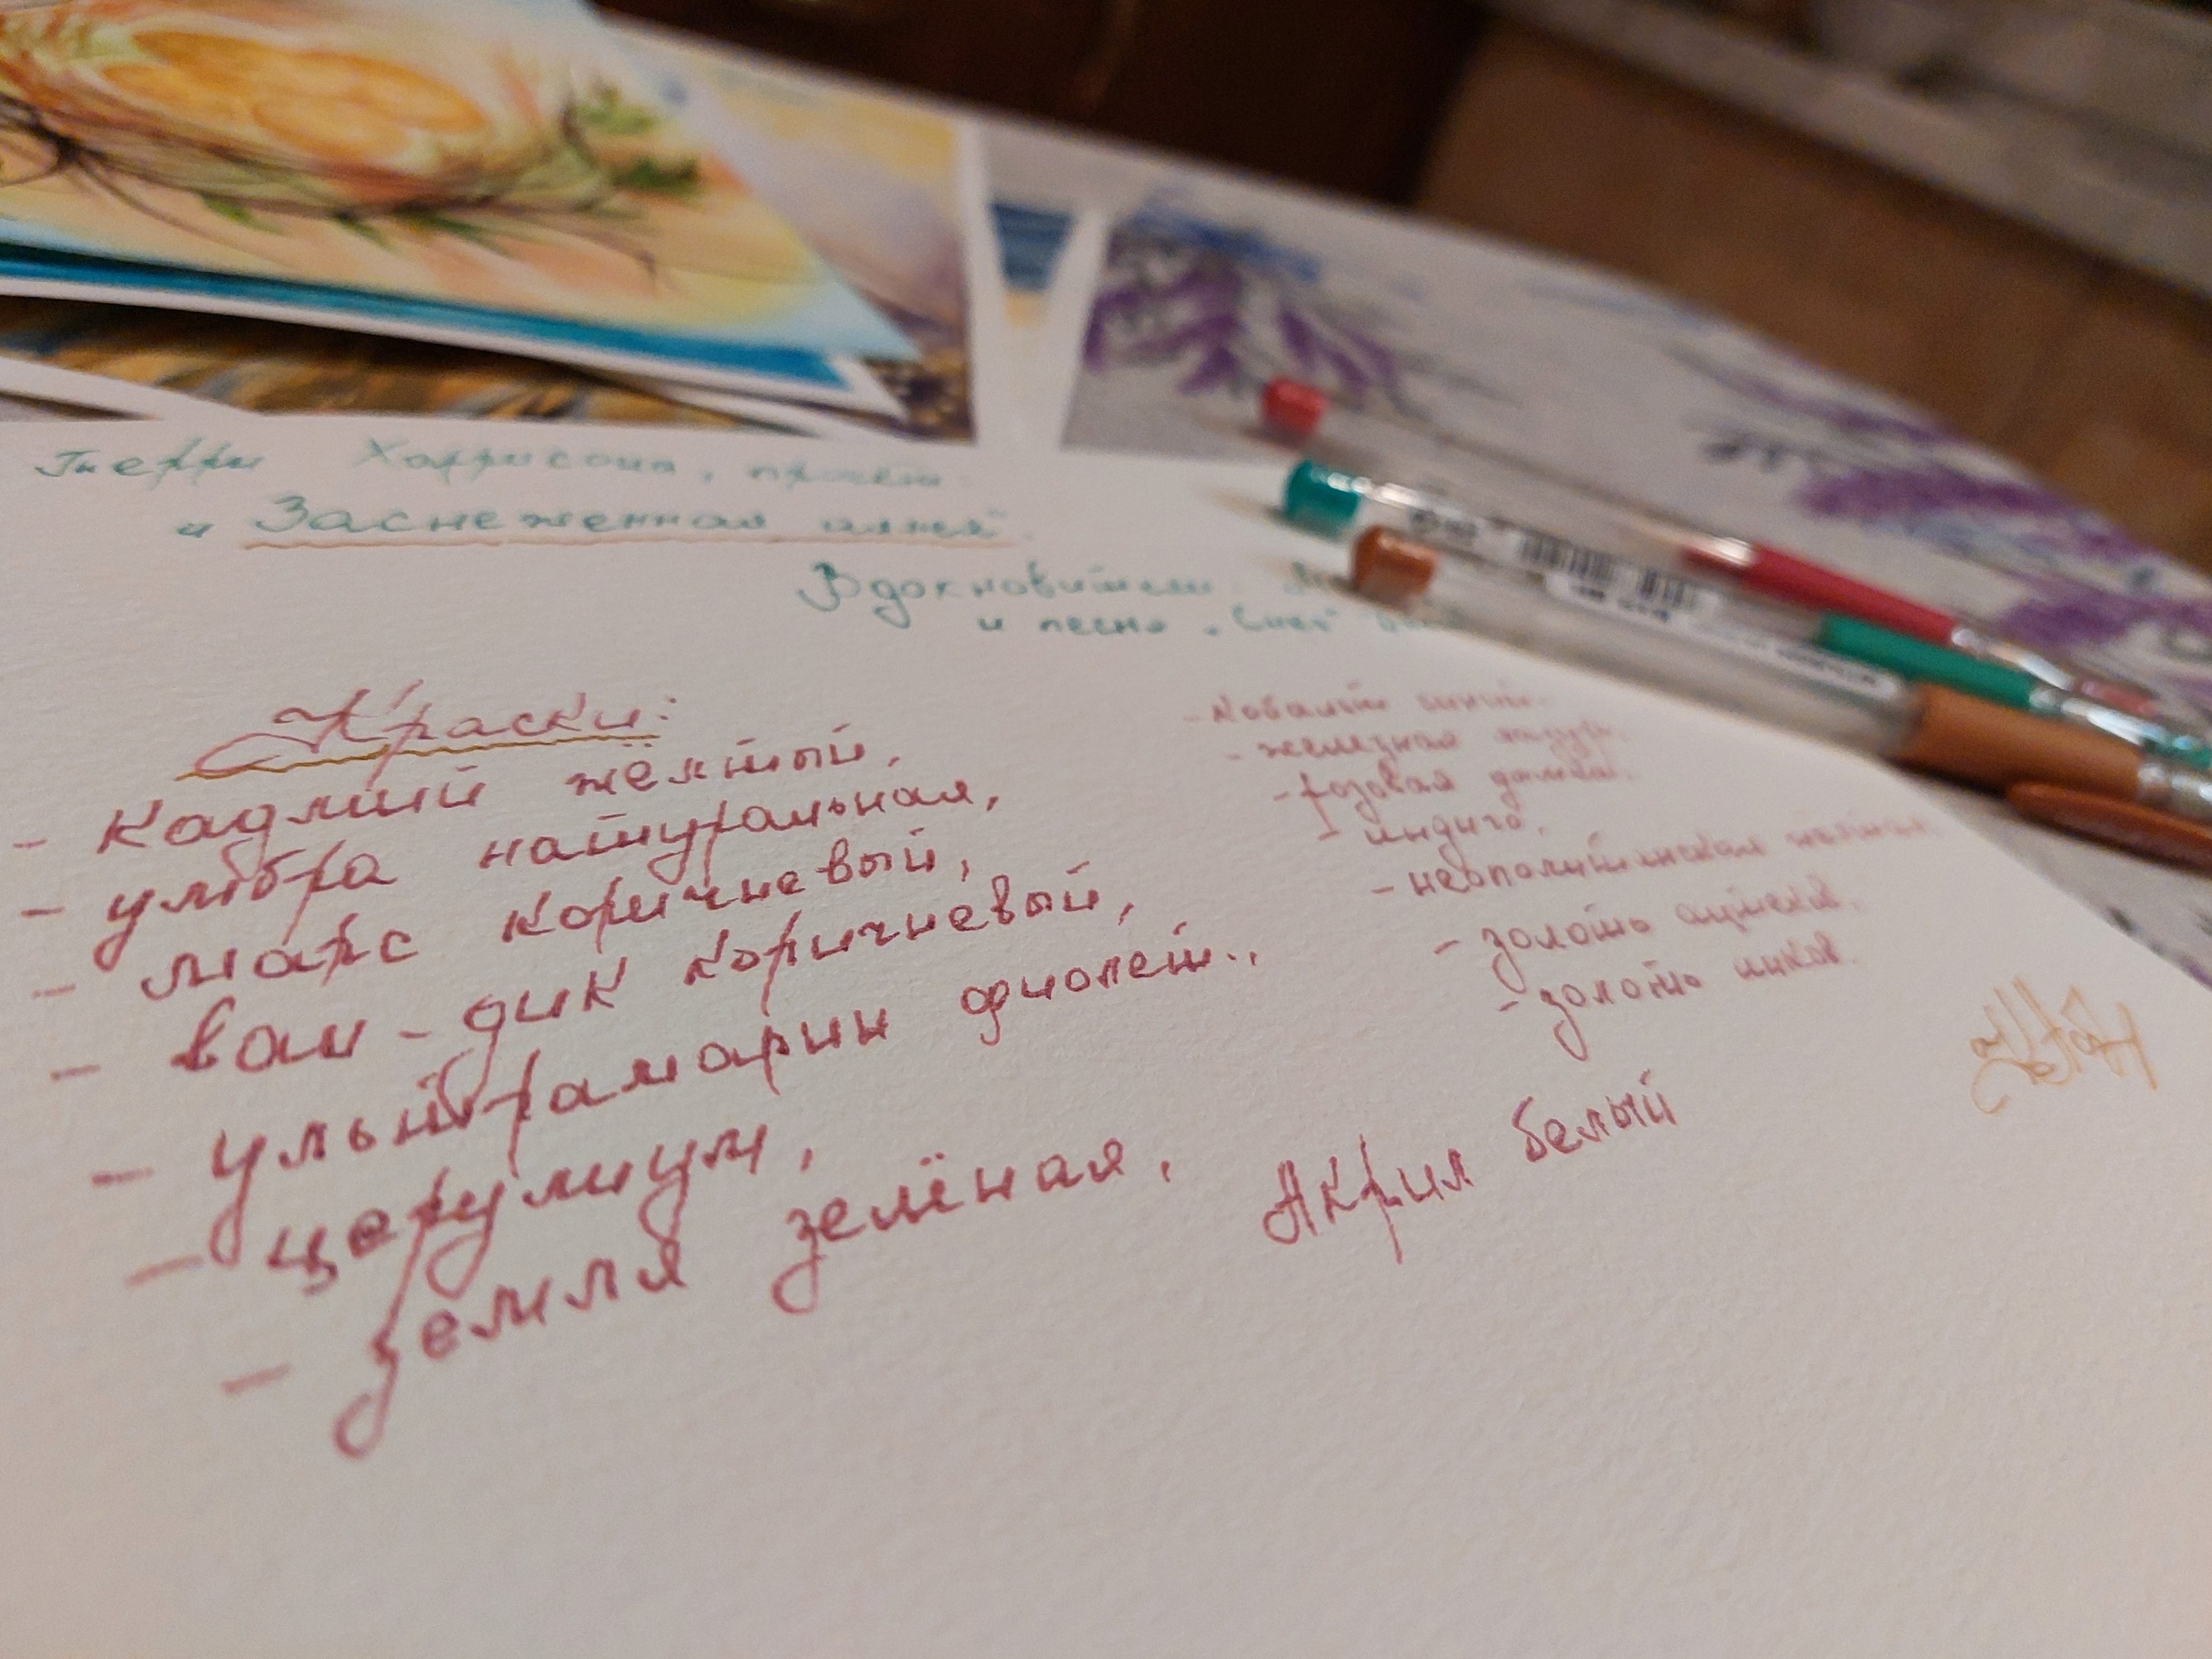 Терри Харрисона, проект:
"Заснеженная аллея".
Вдохновители:
и песня "Снег"
Краски:
- кадмий жёлтый,
- умбра натуральная,
- марс коричневый,
- ван-дик коричневый,
- ультрамарин фиолет.,
- церулиум,
- земля зелёная,
- кобальт синий.
- железная лазурь.
- розовая
- индиго.
- неополитанская
- золото ацтеков.
- золото инков.
Акрил белый